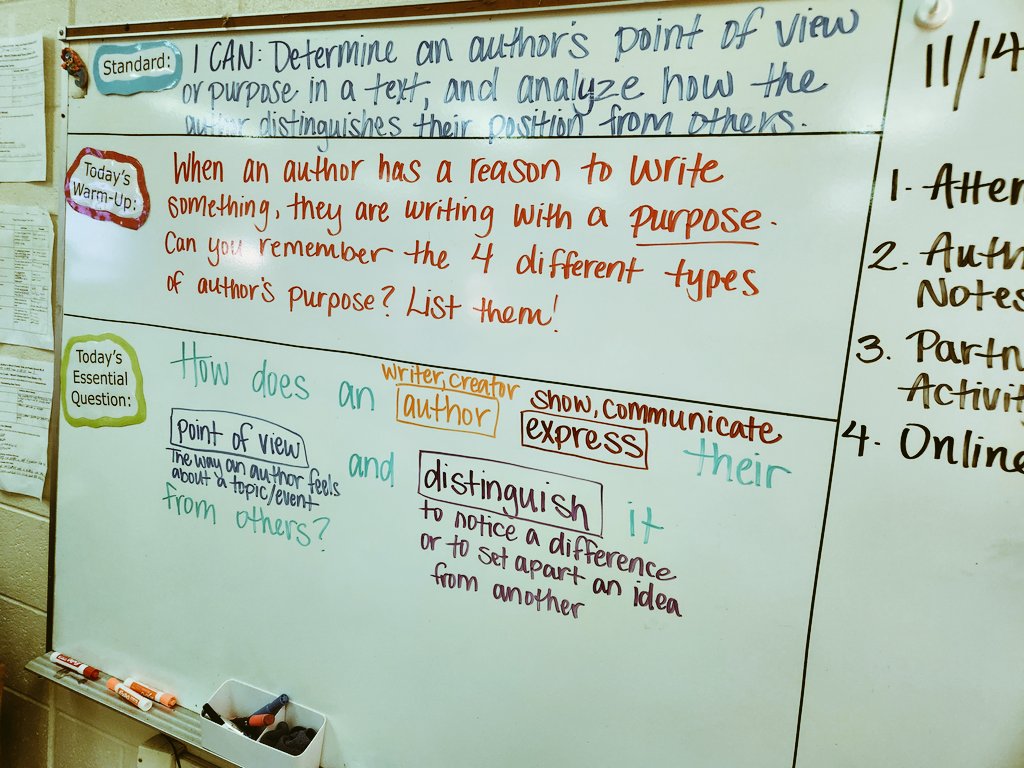 Standard:
I CAN: Determine an author's point of view
or purpose in a text, and analyze how the
author distinguishes their position from others.
Today's
Warm-Up:
When an author has a reason to write
something, they are writing with a purpose.
Can you remember the 4 different types
of author's purpose? List them!
Today's
Essential
Question:
writer, creator
show, communicate
How does an author express their
point of view and distinguish it
the way an author feels
about a topic/event
to notice a difference
or to set apart an idea
from another
from others?
11/14
1.
2.
Notes
3.
4. Online